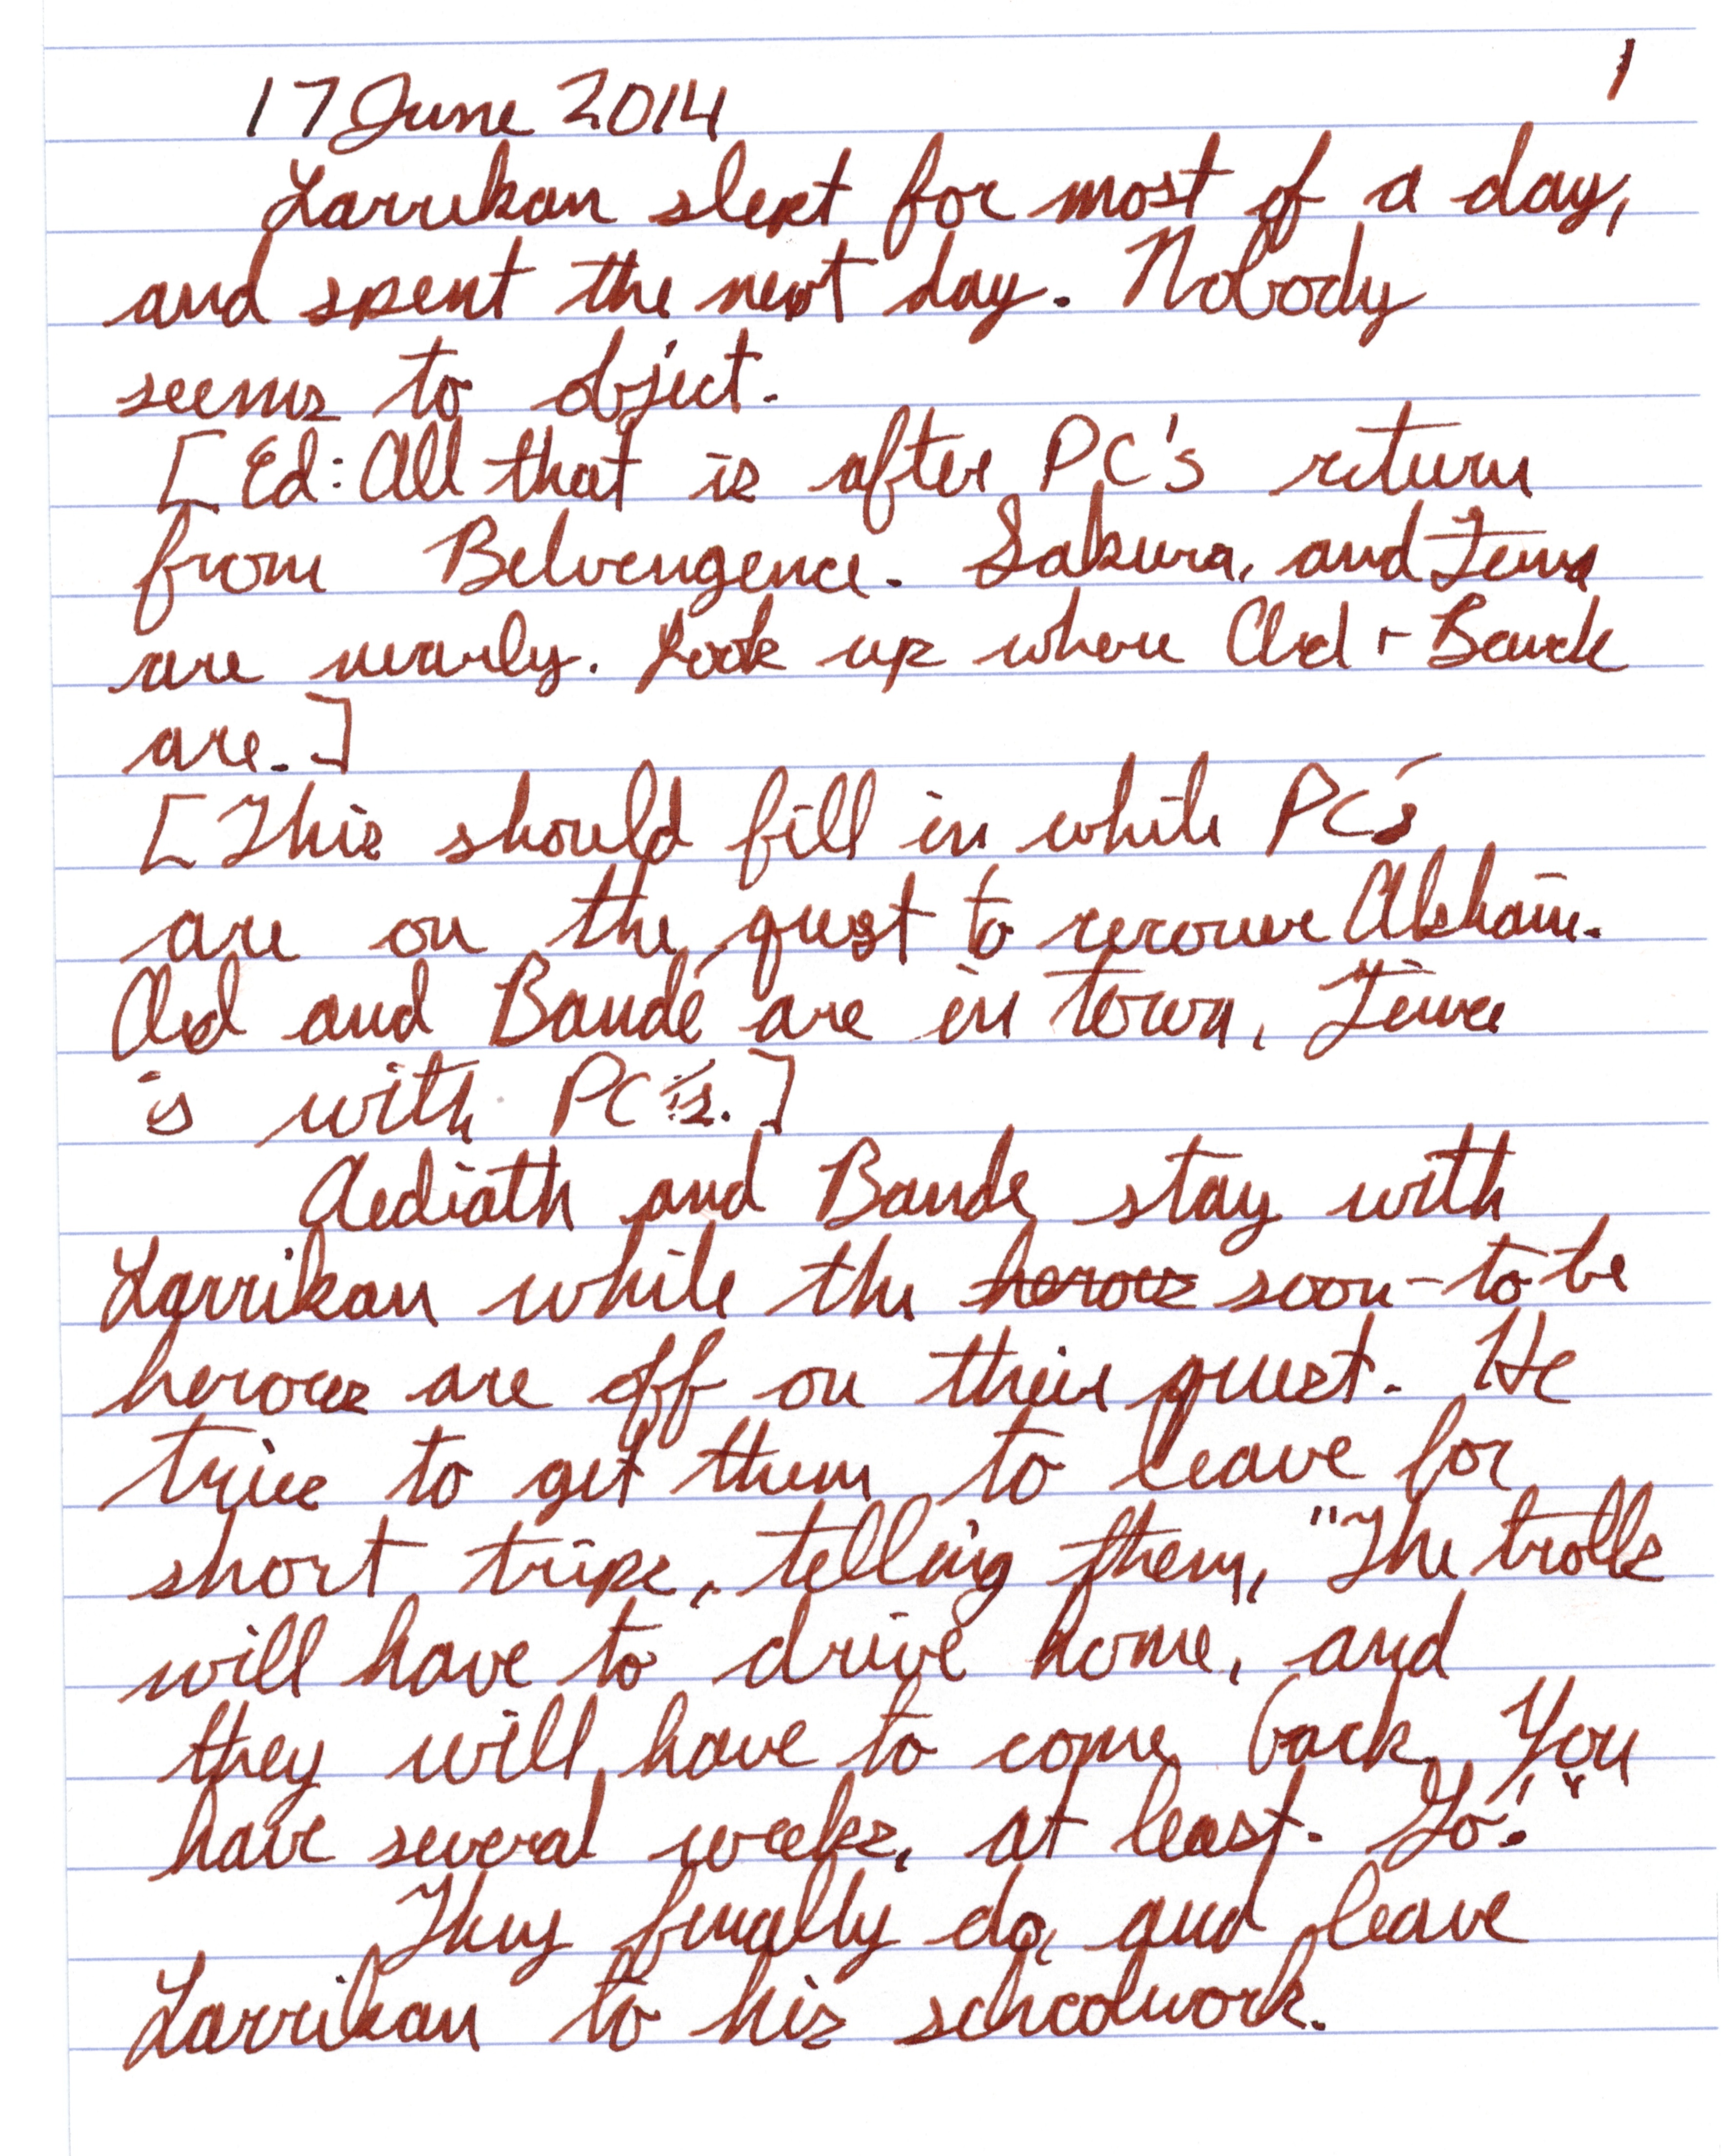 17 June 2014 1
Larrikan slept for most of a day,
and spent the next day. Nobody
seems to object.
[Ed: All that is after PC's return
from Belvengence. Sakura, and
are nearly. Look up where Aed + Baude
are.]
[This should fill in while PC's
are on the quest to recover
Aed and Baudé are in town,
is with PC's.]
Aediath and Baude stay with
Larrikan while the heroes soon-to be
heroes are off on their quest. He
tries to get them to leave for
short trips, telling them, "The trolls
will have to drive home, and
they will have to come back. You
have several weeks, at least. Go!"
They finally do, and leave
Larrikan to his schoolwork.